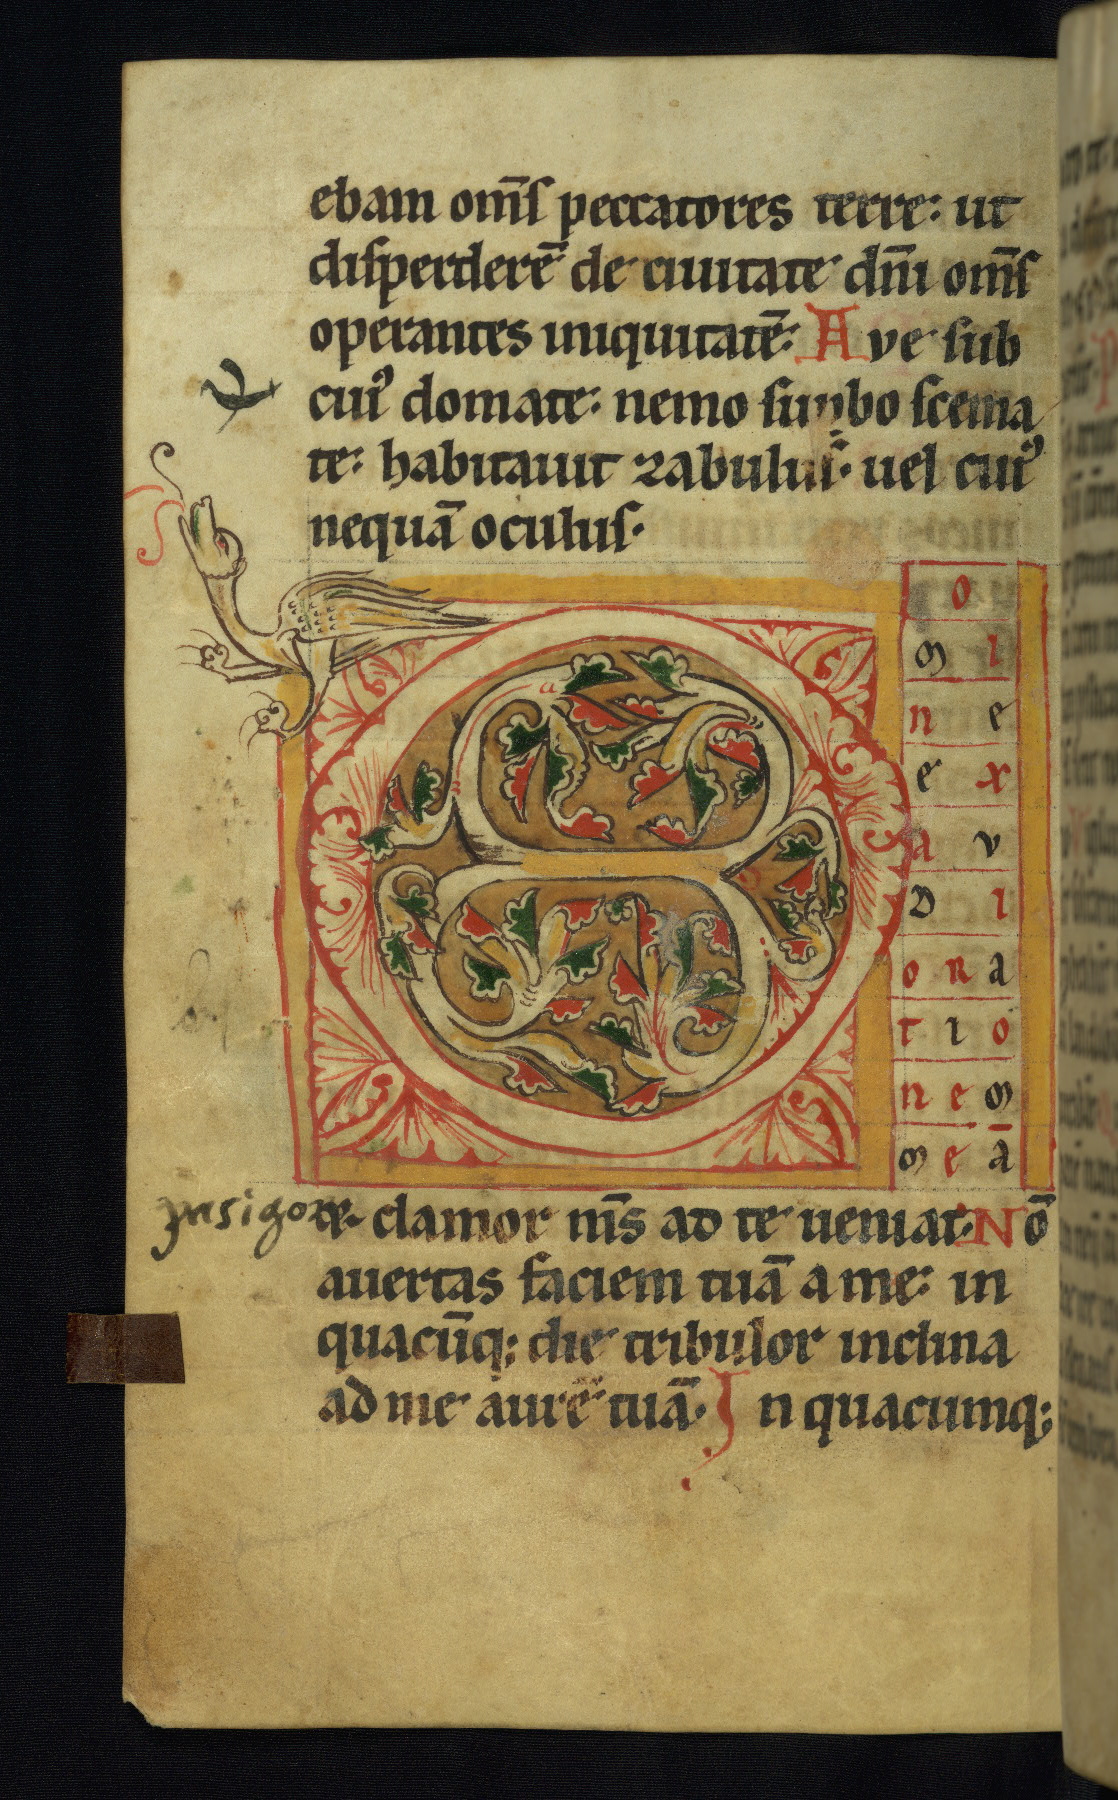 ebam om̄ſ peccatores terre: ut
diſperderē de ciuitate dn̄i om̄ſ
operantes iniquitatē: Ave ſub
cuiꝰ domate: nemo ſimbo ſcema
te: habitauit zabuluſ: uel cuiꝰ
nequā oculuſ.
O
m i
n e
e x
a v
D i
o R a
T i o
n e m
m e ā
te. clamor m̄s ad te ueniat. Nō
auertas faciem tuā a me: in
quacūq; die tribulor inclina
ad me aurē tuā. In quacumq;